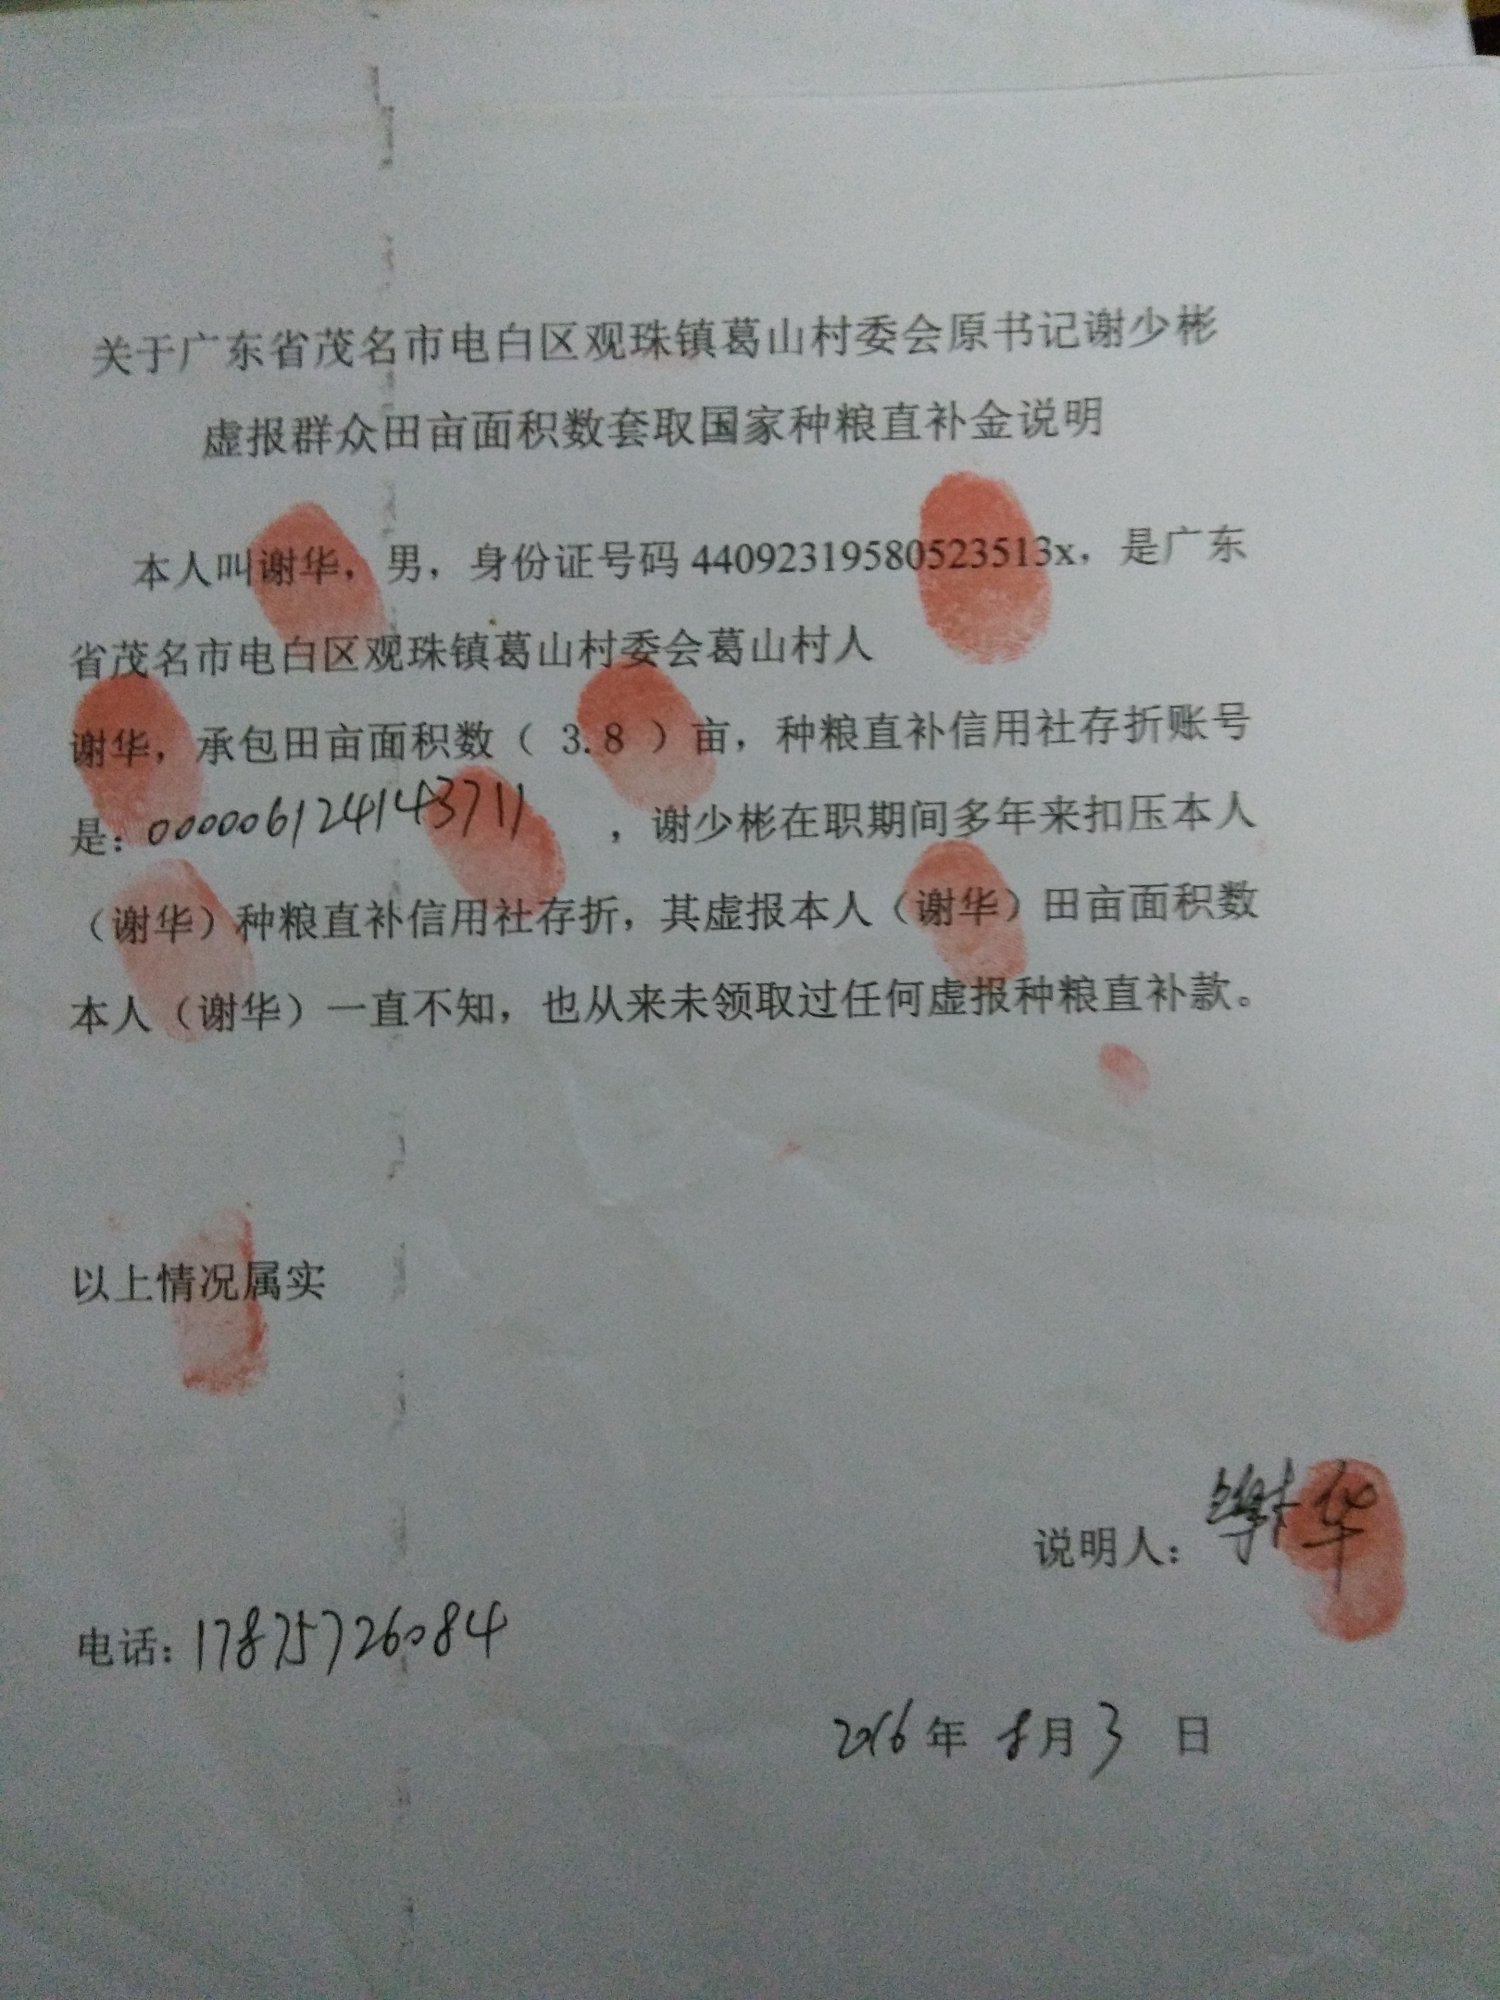 关于广东省茂名市电白区观珠镇葛山村委会原书记谢少彬
虚报群众田亩面积数套取国家种粮直补金说明
本人叫谢华，男，身份证号码44092319580523513x，是广东
省茂名市电白区观珠镇葛山村委会葛山村人
谢华，承包田亩面积数（ 3.8 ）亩，种粮直补信用社存折账号
是：000006124143711 ，谢少彬在职期间多年来扣压本人
（谢华）种粮直补信用社存折，其虚报本人（谢华）田亩面积数
本人（谢华）一直不知，也从来未领取过任何虚报种粮直补款。
以上情况属实
说明人：谢华
电话：17875726084
2016年 8月3 日